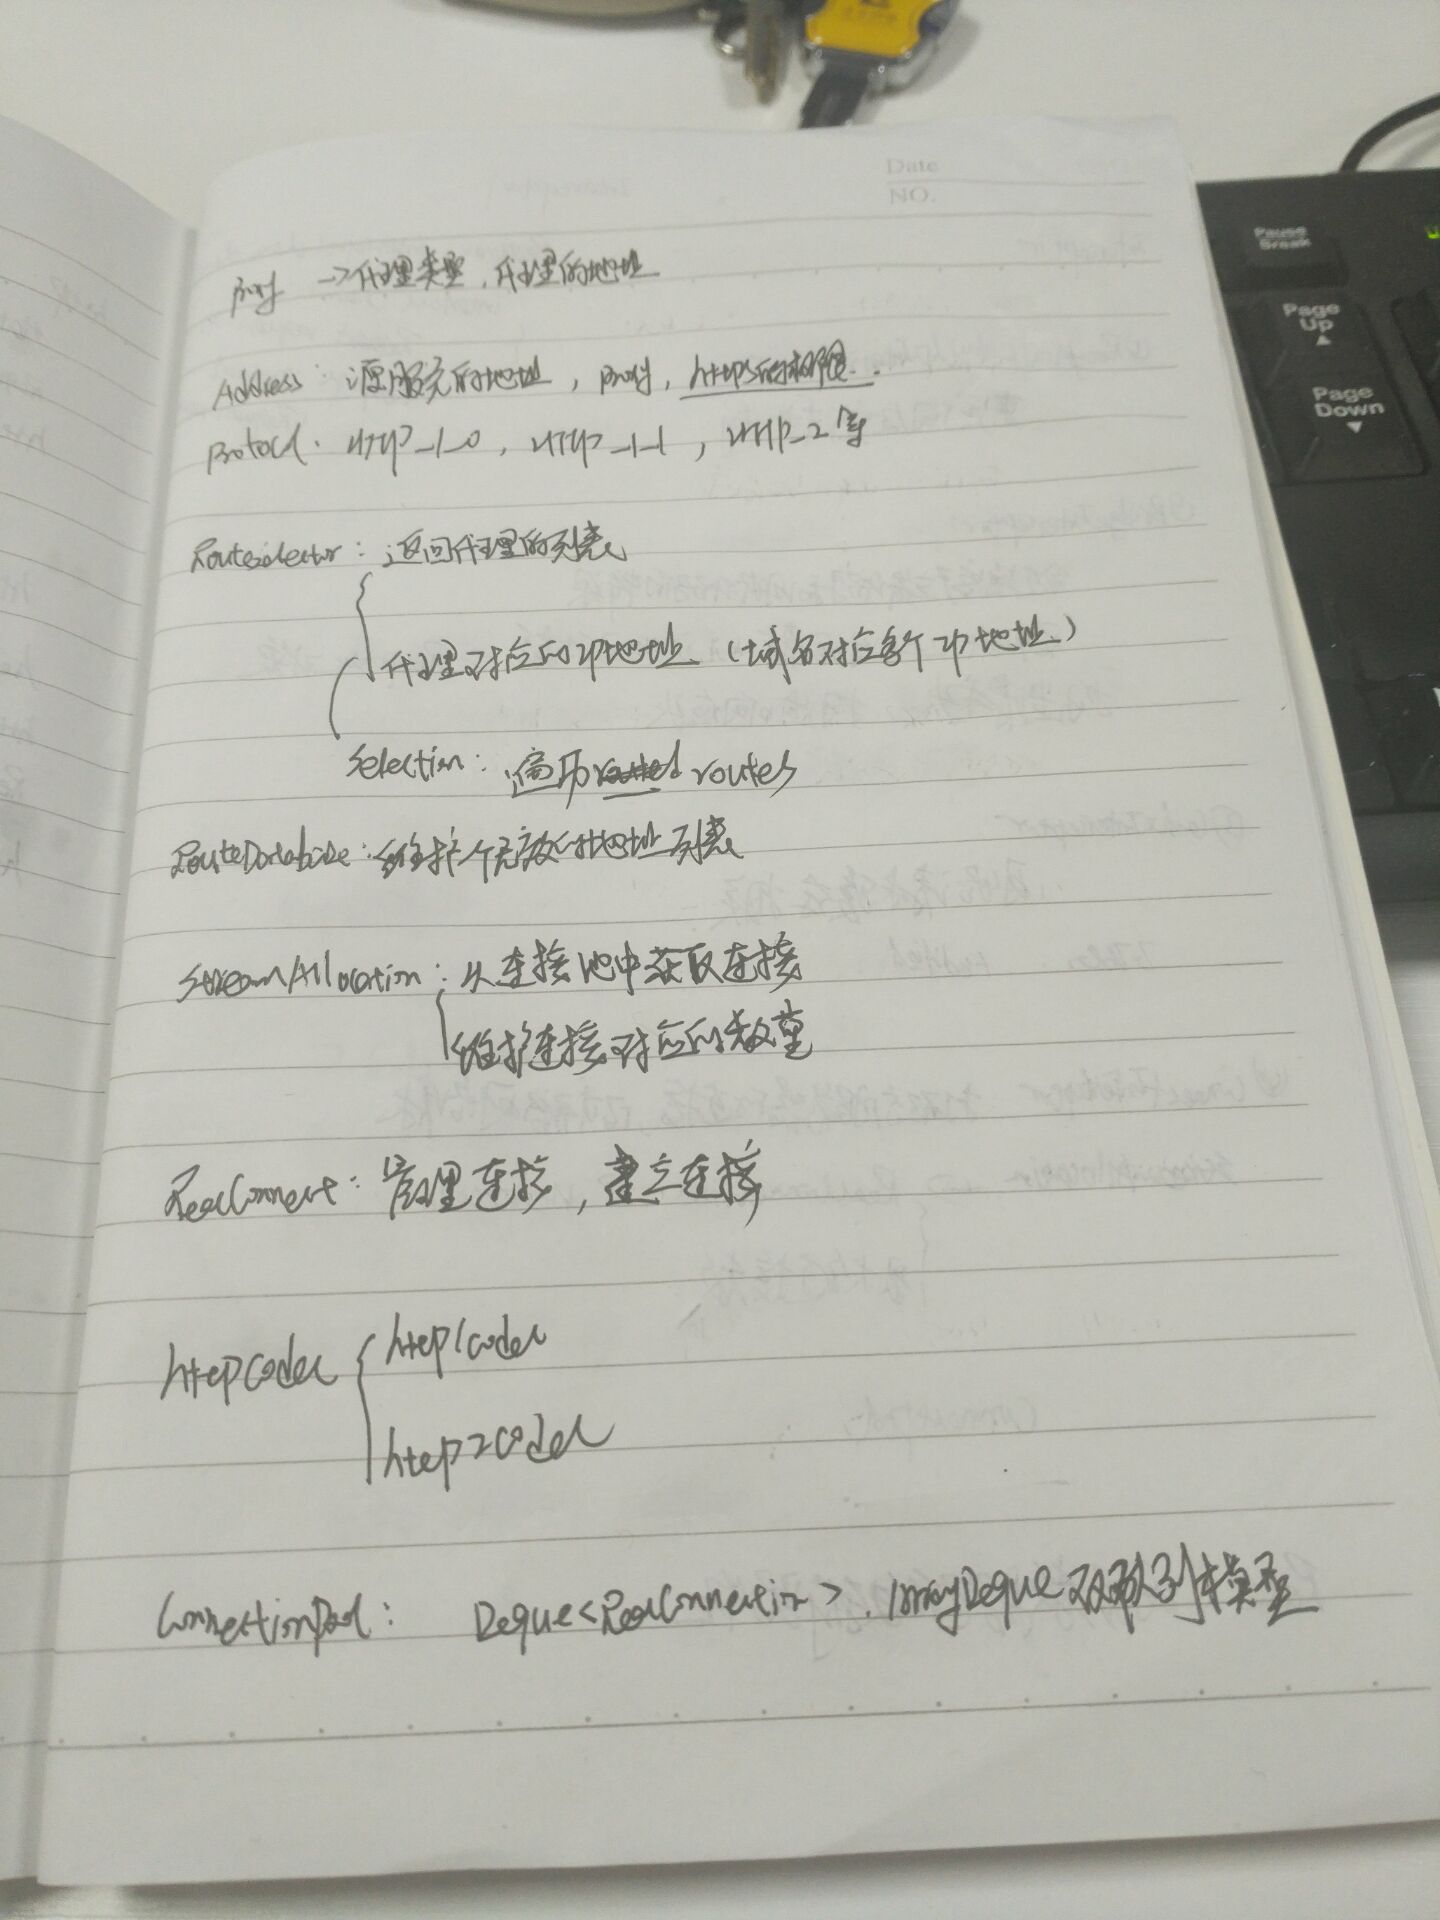 Date
NO.
Pause Break
Page Up
Page Down
Proxy → 代理类型，代理的地址
Address：源服务的地址，proxy，https的权限．
Protocol．HTTP_1_0，HTTP_1_1，HTTP_2等
RouteSelector：返回代理的列表
代理对应的IP地址．（域名对应多个IP地址．）
Selection：遍历 routes
RouteDatabase：维护个无效的地址列表
StreamAllocation：从连接池中获取连接
维护连接对应的数量
RealConnect：管理连接，建立连接
httpCodec
http1codec
http2codec
ConnectionPool： Deque<RealConnection>．ArrayDeque 双队列模型